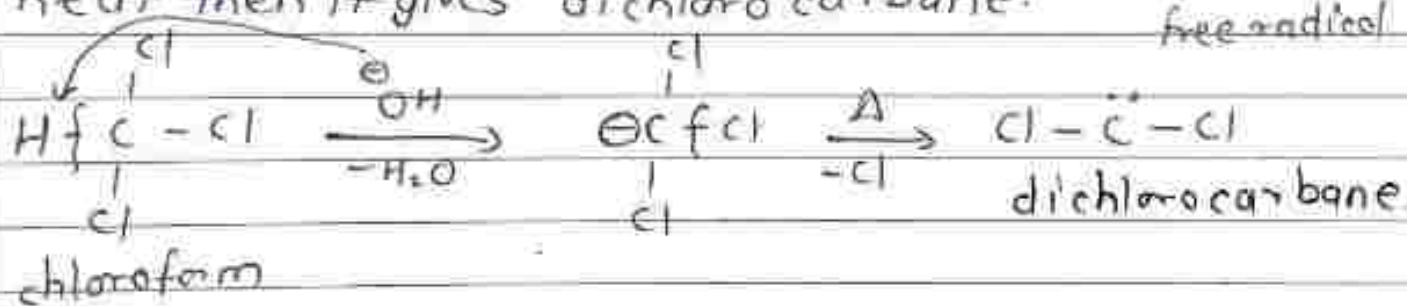 heat then it gives dichloro carbane.
free radical
Cl Cl
⊖
H { C - Cl OH ⊖C { Cl Δ Cl - C̈ - Cl
-H₂O -Cl
Cl Cl dichlorocarbane
chloroform